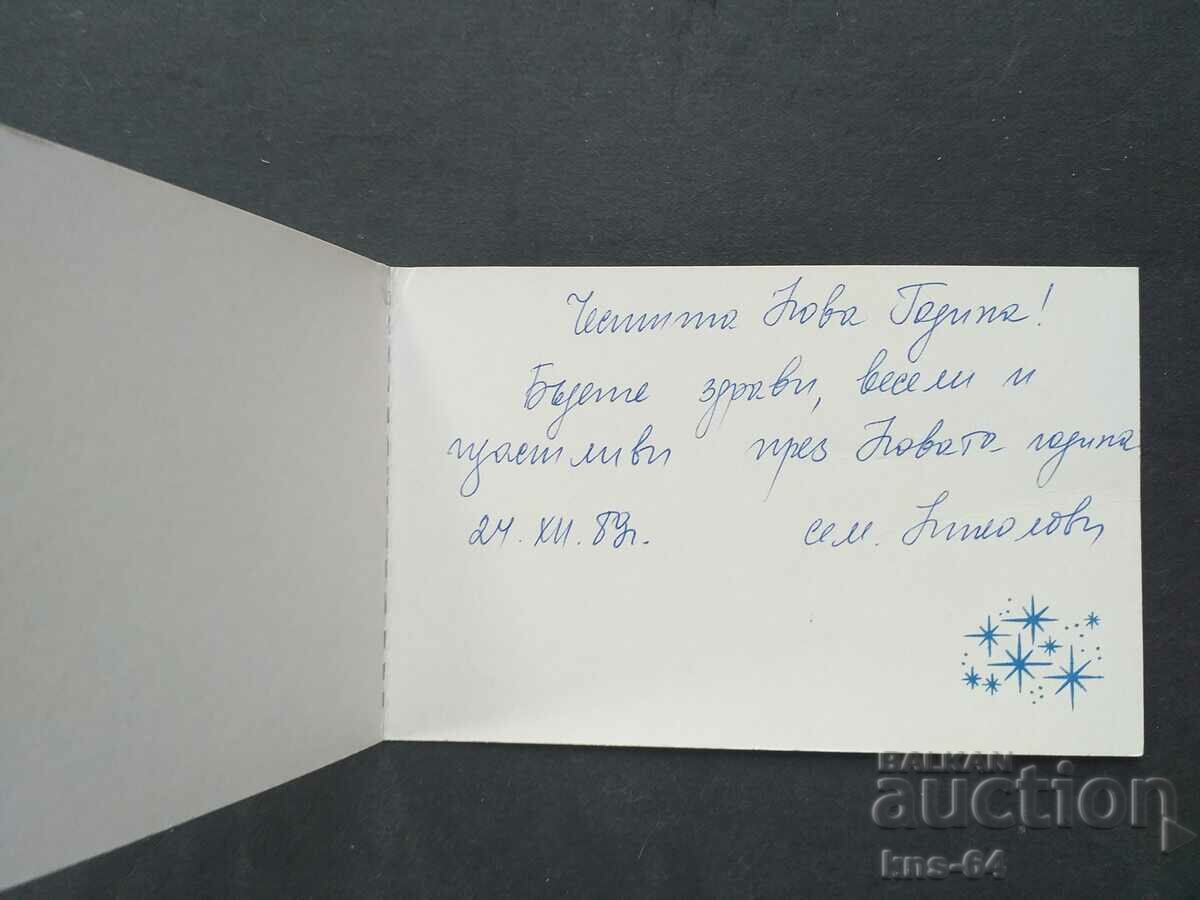 Честита Нова Година!
Бъдете здрави, весели и
щастливи през Новата година
24. XII. 89г. сем. Николови
BALKAN
auction
kns-64